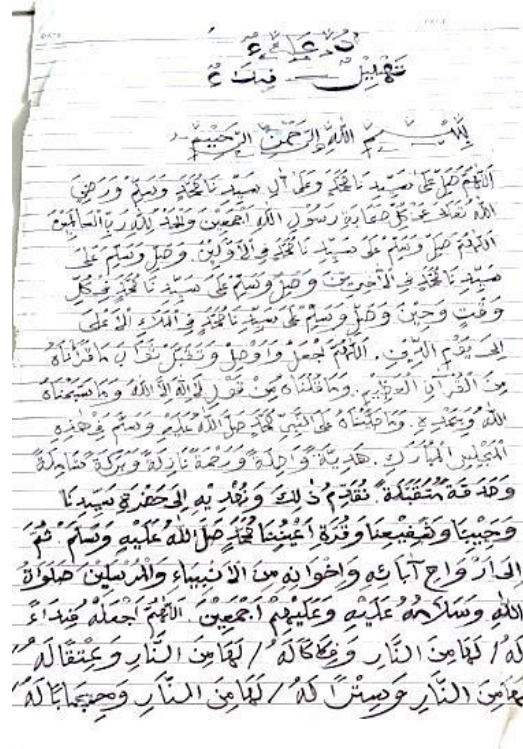 دُعَاءُ
تَهْلِيْلْ فِدَاءْ
بِسْمِ اللهِ الرَّحْمٰنِ الرَّحِيْمِ
اَللّٰهُمَّ صَلِّ عَلَى سَيِّدِنَا مُحَمَّدٍ وَعَلَى اٰلِ سَيِّدِنَا مُحَمَّدٍ وَسَلِّمْ وَرَضِيَ
اللهُ تَعَالَى عَنْ كُلِّ صَحَابَةِ رَسُوْلِ اللهِ اَجْمَعِيْنَ وَالْحَمْدُ لِلّٰهِ رَبِّ الْعَالَمِيْنَ
اَللّٰهُمَّ صَلِّ وَسَلِّمْ عَلَى سَيِّدِنَا مُحَمَّدٍ فِى الْاَوَّلِيْنَ. وَصَلِّ وَسَلِّمْ عَلَى
سَيِّدِنَا مُحَمَّدٍ فِى الْاٰخِرِيْنَ وَصَلِّ وَسَلِّمْ عَلَى سَيِّدِنَا مُحَمَّدٍ فِى كُلِّ
وَقْتٍ وَحِيْنٍ وَصَلِّ وَسَلِّمْ عَلَى سَيِّدِنَا مُحَمَّدٍ فِى الْمَلَإِ الْاَعْلَى
اِلَى يَوْمِ الدِّيْنِ. اَللّٰهُمَّ اجْعَلْ وَاَوْصِلْ وَتَقَبَّلْ ثَوَابَ مَا قَرَأْنَاهُ
مِنَ الْقُرْاٰنِ الْعَظِيْمِ. وَمَا قُلْنَاهُ مِنْ قَوْلِ لَااِلٰهَ اِلَّا اللهُ وَمَا سَبَّحْنَاهُ
اللهَ وَبِحَمْدِهِ. وَمَا صَلَّيْنَاهُ عَلَى النَّبِيِّ مُحَمَّدٍ صَلَّى اللهُ عَلَيْهِ وَسَلَّمَ فِى هٰذِهِ
الْمَجْلِسِ الْمُبَارَكِ. هَدِيَّةً وَاصِلَةً وَرَحْمَةً نَازِلَةً وَبَرَكَةً شَامِلَةً
وَصَدَقَةً مُتَقَبَّلَةً. نُقَدِّمُ ذٰلِكَ وَنُهْدِيْهِ اِلَى حَضْرَةِ سَيِّدِنَا
وَحَبِيْبِنَا وَشَفِيْعِنَا وَقُرَّةِ اَعْيُنِنَا مُحَمَّدٍ صَلَّى اللهُ عَلَيْهِ وَسَلَّمَ. ثُمَّ
اِلَى اَرْوَاحِ اٰبَائِهِ وَاِخْوَانِهِ مِنَ الْاَنْبِيَاءِ وَالْمُرْسَلِيْنَ صَلَوَاةُ
اللهِ وَسَلَامُهُ عَلَيْهِ وَعَلَيْهِمْ اَجْمَعِيْنَ. اَللّٰهُمَّ اجْعَلْهُ فِدَاءً
لَهُ / لَهَا مِنَ النَّارِ وَفِكَاكًالَهُ / لَهَا مِنَ النَّارِ وَعِتْقًالَهُ /
لَهَا مِنَ النَّارِ وَسِتْرًا لَهُ / لَهَا مِنَ النَّارِ وَحِجَابًا لَهُ /